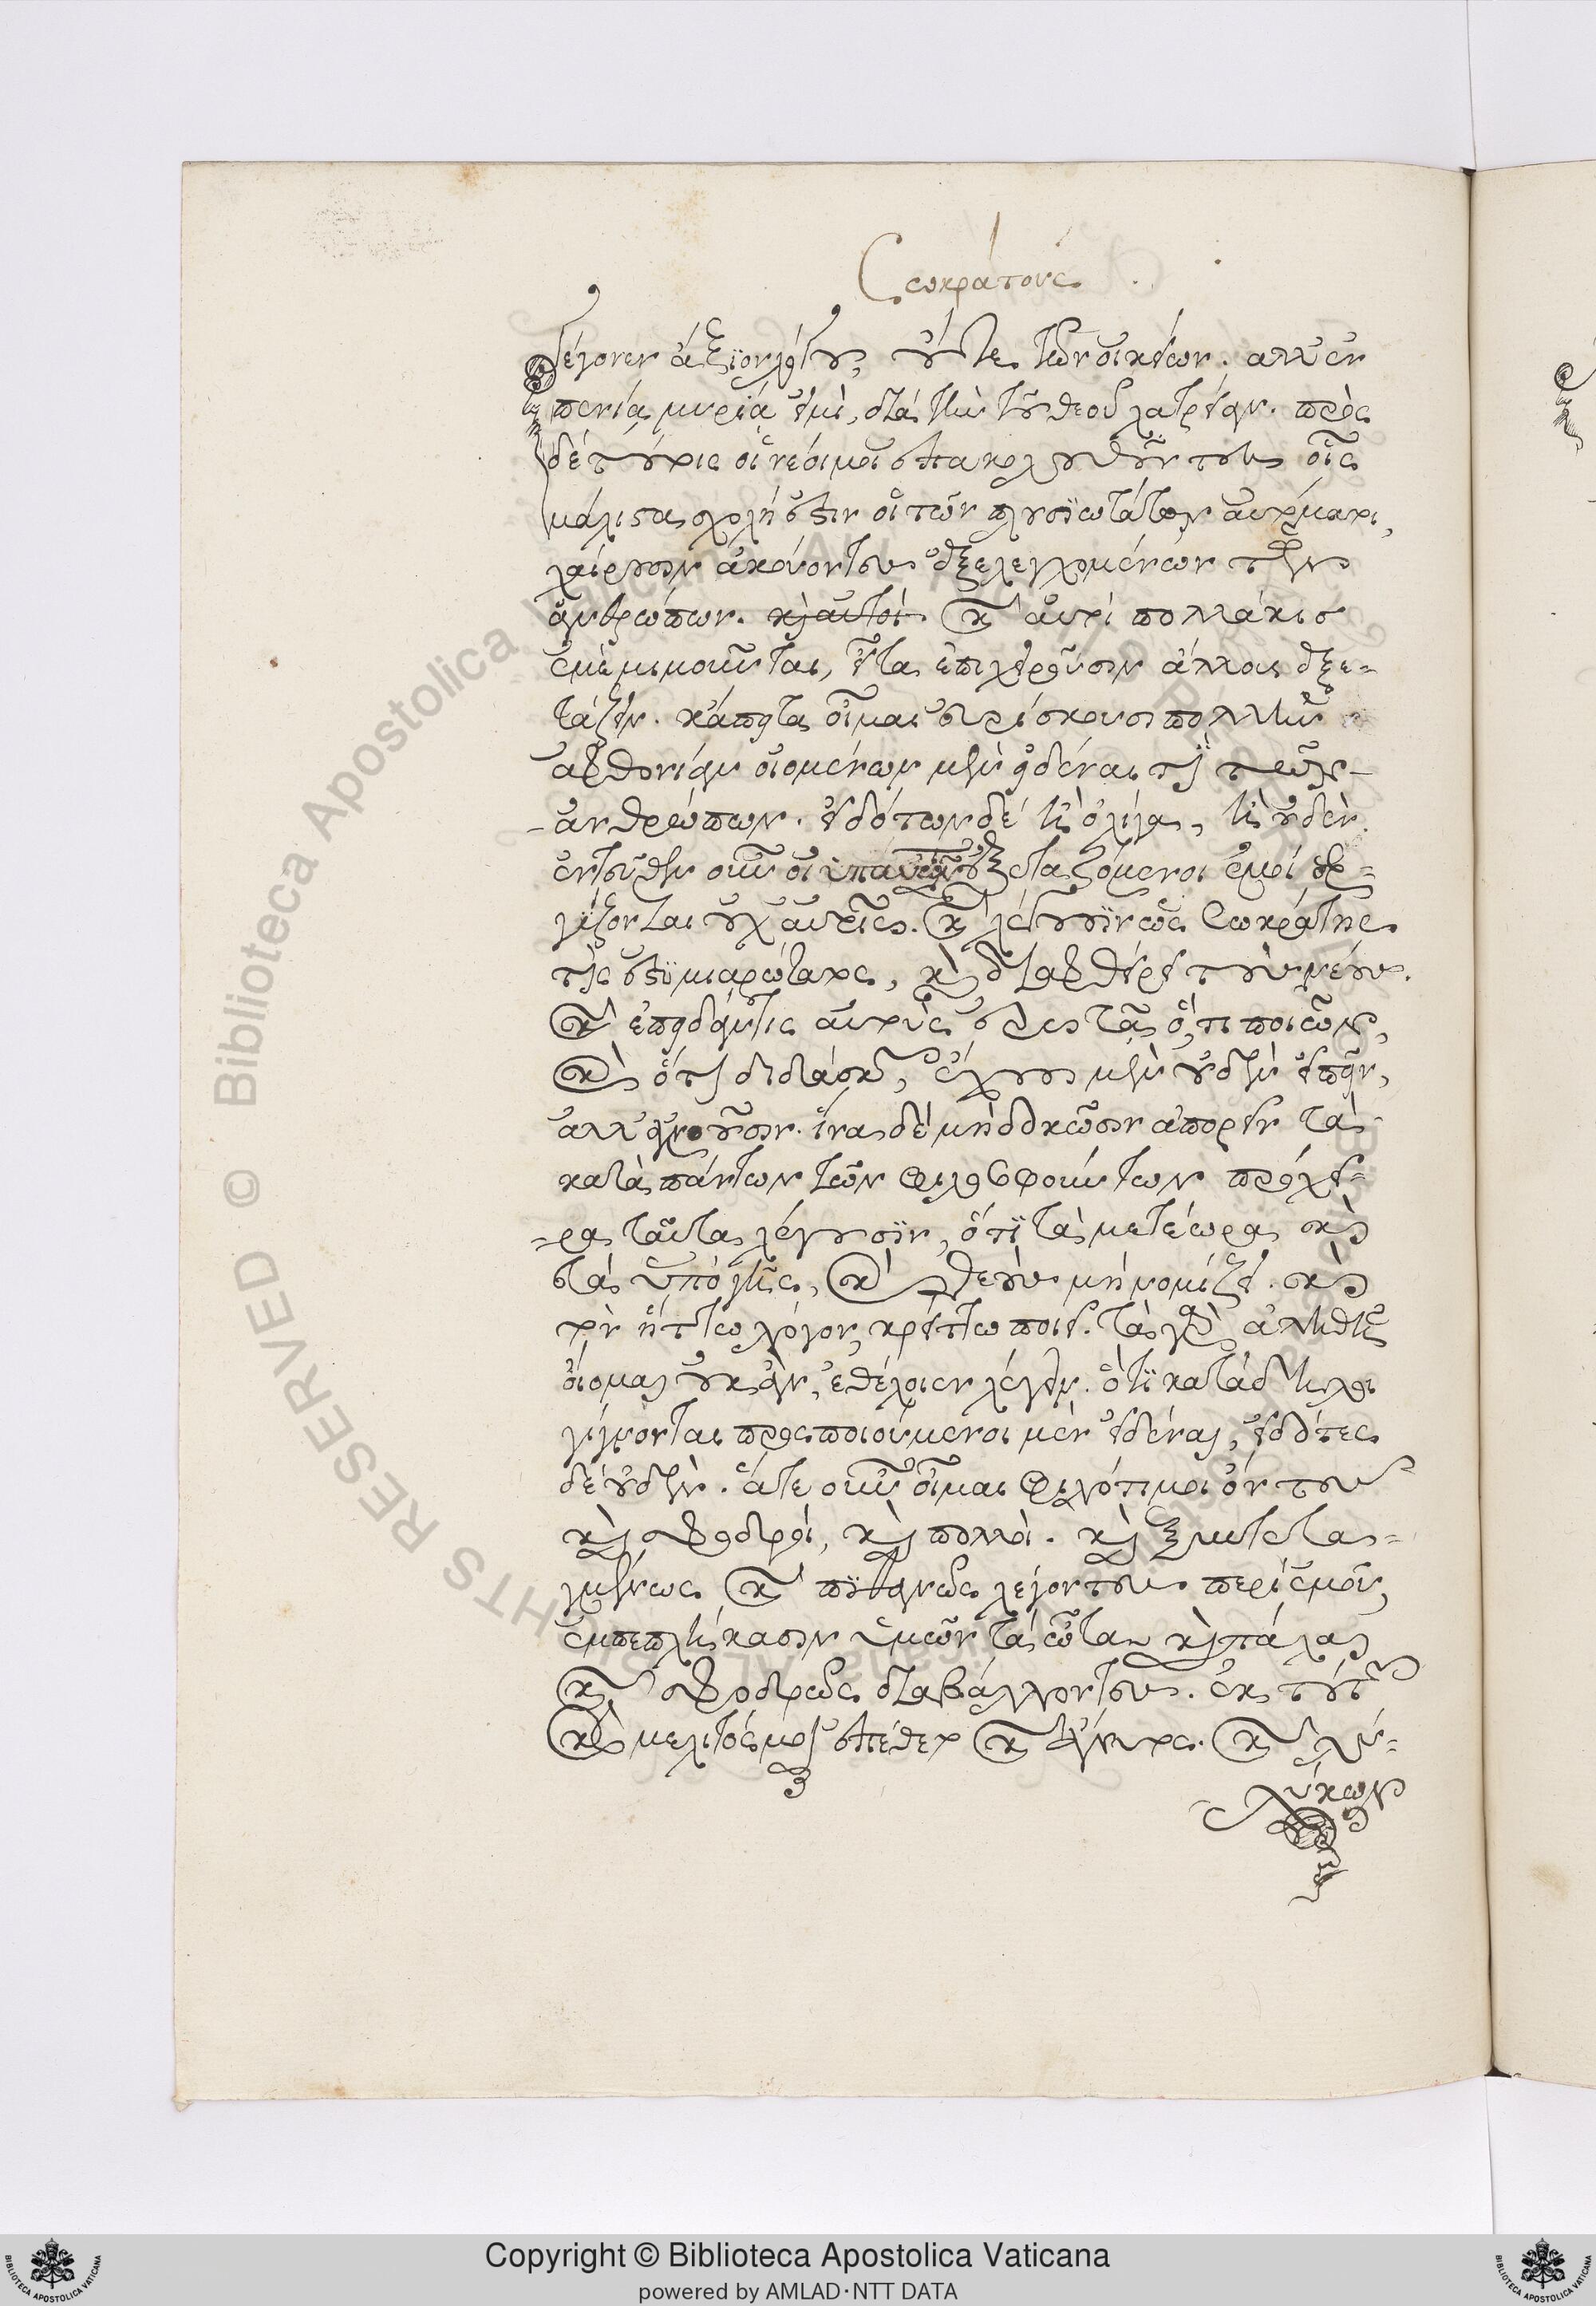 Σωκράτους
γέγονεν ἄξιον λόγου, οὔτε τῶν οἰκείων. ἀλλ' ἐν
πενία μυρία εἰμὶ, διὰ τὴν τοῦ θεοῦ λατρείαν. πρὸς
δὲ τούτοις οἱ νέοι μοι ἐπακολουθοῦντες οἷς
μάλιστα σχολή ἐστιν οἱ τῶν πλουσιωτάτων αὐτόματοι,
χαίρουσιν ἀκούοντες ἐξελεγχομένων τῶν
ἀνθρώπων. καὶ αὐτοὶ πολλάκις
ἐμὲ μιμοῦνται, εἶτα ἐπιχειροῦσιν ἄλλους ἐξε-
τάζειν. κἄπειτα οἶμαι εὑρίσκουσι πολλὴν
ἀφθονίαν οἰομένων μὲν εἰδέναι τὶ τῶν
-ἀνθρώπων. εἰδότων δὲ ἢ ὀλίγα, ἢ οὐδέν.
ἐντεῦθεν οὖν οἱ ὑπ' αὐτῶν ἐξεταζόμενοι ἐμοὶ ὀρ-
γίζονται οὐχ αὑτοῖς. καὶ λέγουσιν ὡς Σωκράτης
τίς ἐστι μιαρώτατος, καὶ διαφθείρει τοὺς νέους.
καὶ ἐπειδάν τις αὐτοὺς ἐρωτᾶ ὅ, τι ποιῶν,
καὶ ὅτι διδάσκων, ἔχουσι μὲν οὐδὲν εἰπεῖν,
ἀλλ' ἀγνοοῦσιν. ἵνα δὲ μὴ δοκῶσιν ἀπορεῖν τὰ
κατὰ πάντων τῶν φιλοσοφούντων πρόχει-
-ρα ταῦτα λέγουσιν, ὅτι τὰ μετέωρα καὶ
τὰ ὑπὸ γῆς, καὶ θεοὺς μὴ νομίζει. καὶ
τὸν ἥττω λόγον, κρείττω ποιεῖ. τὰ γὰρ ἀληθῆ
οἴομαι οὐκ ἂν, ἐθέλοιεν λέγειν. ὅτι κατάδηλοι
γίγνονται προσποιούμενοι μὲν εἰδέναι, εἰδότες
δὲ οὐδέν. ἅτε οὖν οἶμαι φιλότιμοι ὄντες
καὶ σφοδροί, καὶ πολλοί. καὶ ξυντετα-
γμένως καὶ πιθανῶς λέγοντες περὶ ἐμοῦ,
ἐμπεπλήκασιν ὑμῶν τὰ ὦτα καὶ πάλαι
καὶ σφοδρῶς διαβάλλοντες. ἐκ τούτων
καὶ μέλιτός μοι ἐπέθετο καὶ ἄνυτος. καὶ λύ-
λύκων